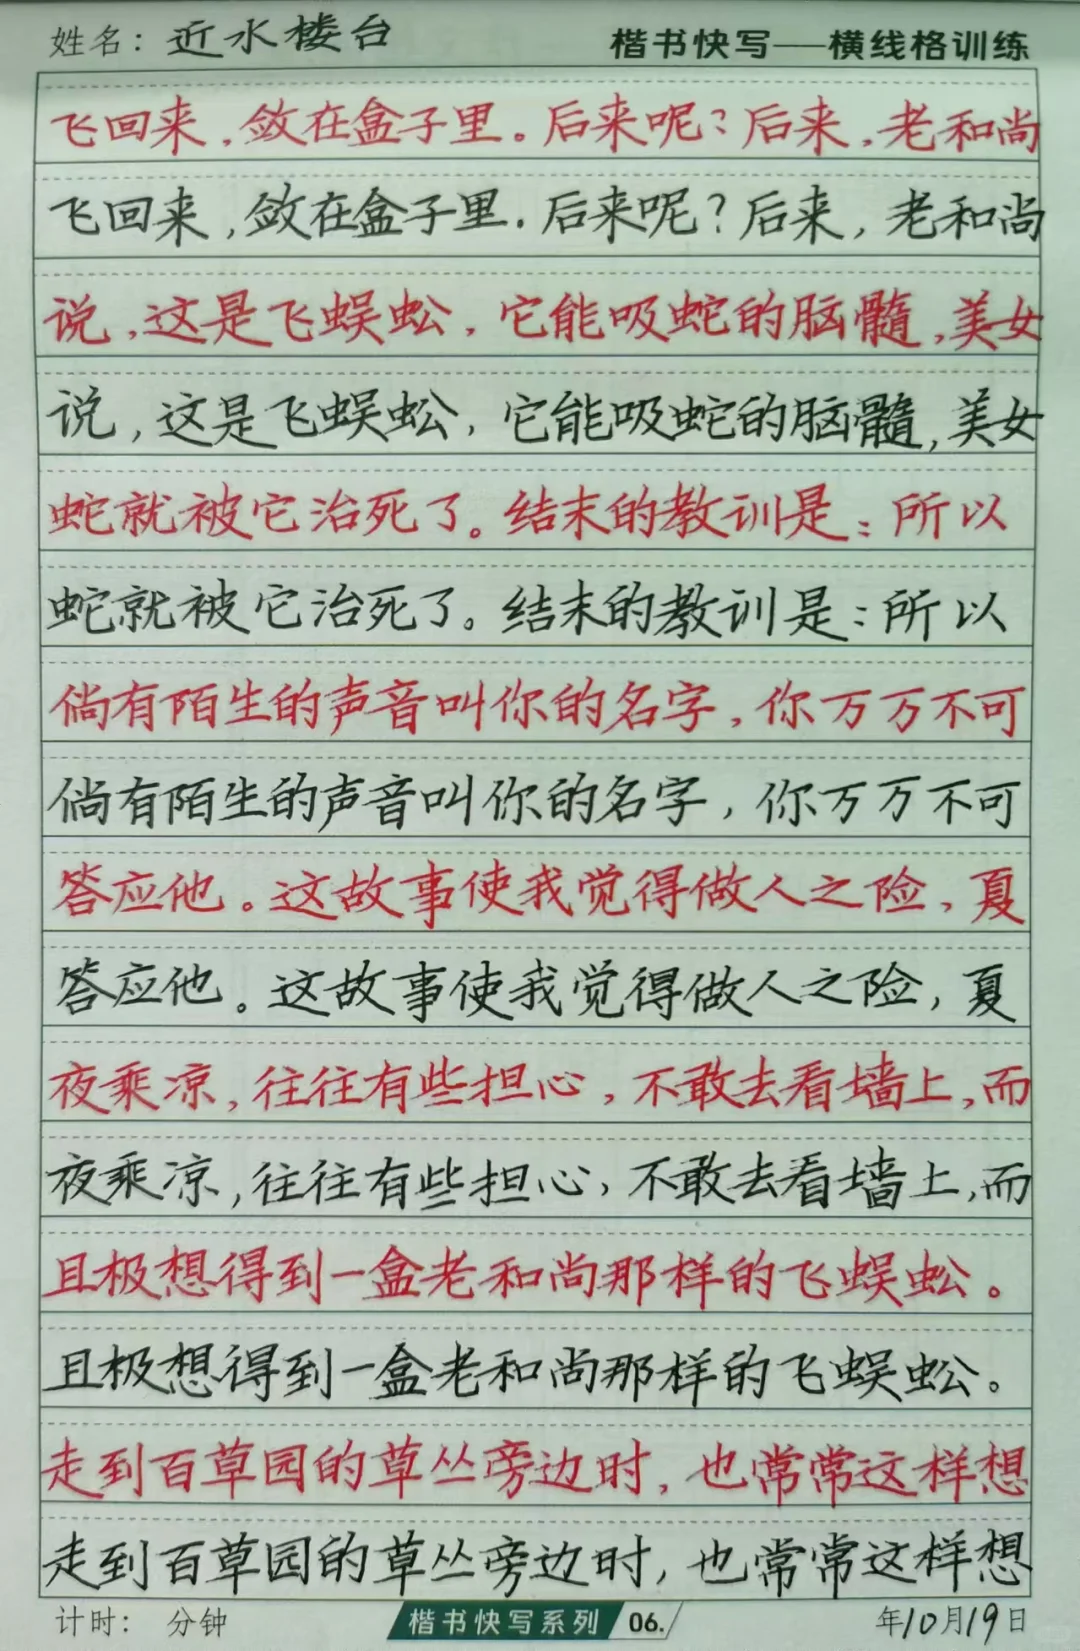 姓名：近水楼台 楷书快写——横线格训练
飞回来，敛在盒子里。后来呢？后来，老和尚
飞回来，敛在盒子里。后来呢？后来，老和尚
说，这是飞蜈蚣，它能吸蛇的脑髓，美女
说，这是飞蜈蚣，它能吸蛇的脑髓，美女
蛇就被它治死了。结末的教训是：所以
蛇就被它治死了。结末的教训是：所以
倘有陌生的声音叫你的名字，你万万不可
倘有陌生的声音叫你的名字，你万万不可
答应他。这故事使我觉得做人之险，夏
答应他。这故事使我觉得做人之险，夏
夜乘凉，往往有些担心，不敢去看墙上，而
夜乘凉，往往有些担心，不敢去看墙上，而
且极想得到一盒老和尚那样的飞蜈蚣。
且极想得到一盒老和尚那样的飞蜈蚣。
走到百草园的草丛旁边时，也常常这样想
走到百草园的草丛旁边时，也常常这样想
计时： 分钟 楷书快写系列 06. 年10月19日